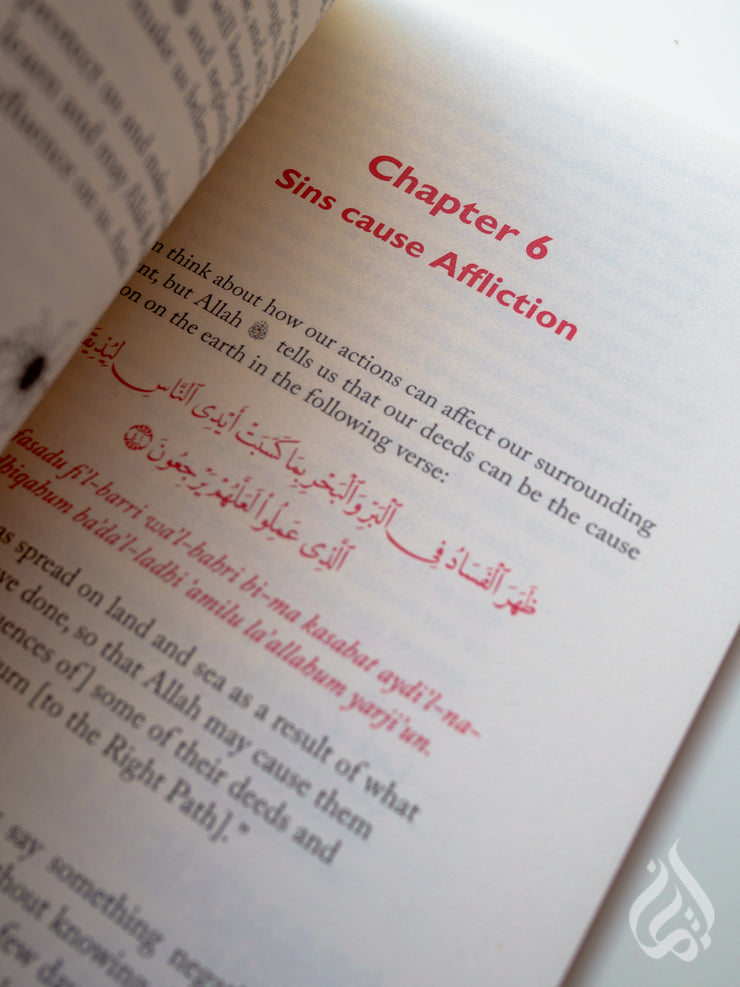 protect us and
learn and may
on us,
Chapter 6
Sins cause Affliction
n think about how our actions can affect our surrounding
nt, but Allah ﷻ tells us that our deeds can be the cause
on on the earth in the following verse:
ظَهَرَ ٱلْفَسَادُ فِى ٱلْبَرِّ وَٱلْبَحْرِ بِمَا كَسَبَتْ أَيْدِى ٱلنَّاسِ لِيُذِيقَ
ٱلَّذِى عَمِلُوا۟ لَعَلَّهُمْ يَرْجِعُونَ ٤١
fasadu fi'l-barri wa'l-bahri bi-ma kasabat aydi'l-na-
dhiqahum ba'da'l-ladhi 'amilu la'allahum yarji'un.
as spread on land and sea as a result of what
ve done, so that Allah may cause them
uences of] some of their deeds and
urn [to the Right Path]."
say something nega
thout knowing
few da